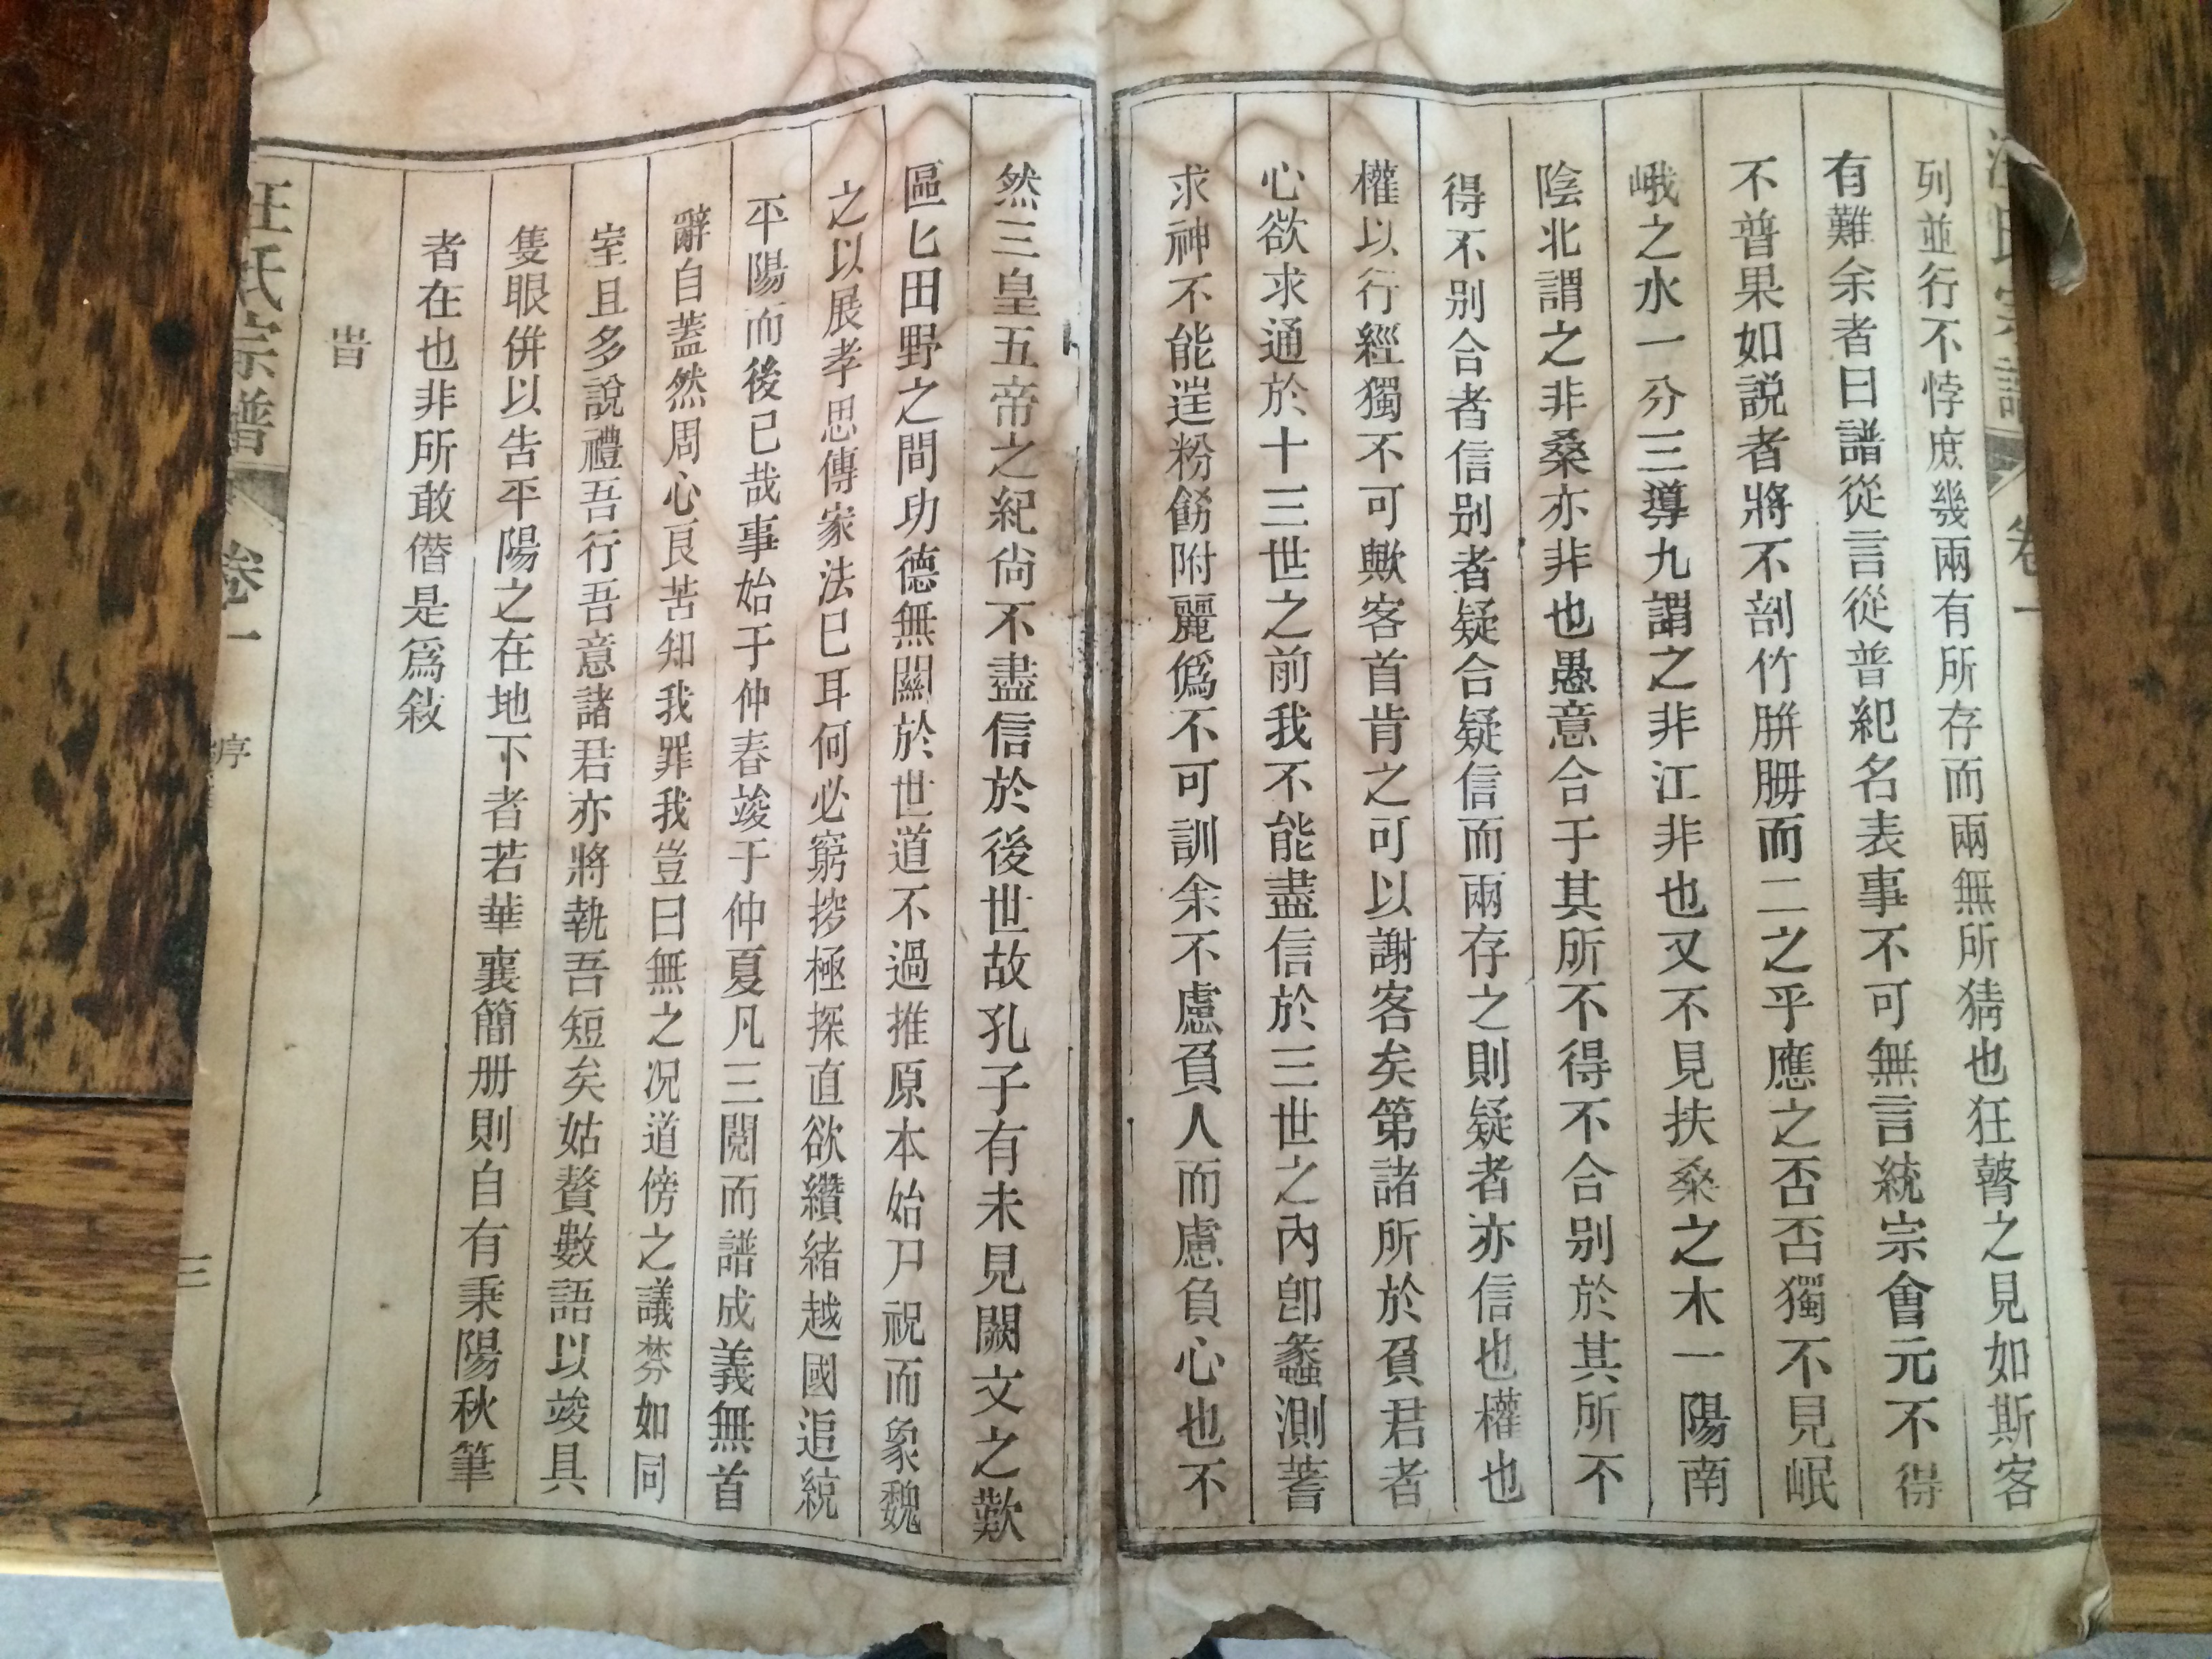 列並行不悖庶幾兩有所存而兩無所猜也狂瞽之見如斯客
有難余者曰譜從言從普紀名表事不可無言統宗會元不得
不普果如説者將不剖竹胼胼而二之乎應之否否獨不見岷
峨之水一分三導九謂之非江非也又不見扶桑之木一陽南
陰北謂之非桑亦非也愚意合于其所不得不合别於其所不
得不别合者信别者疑合疑信而兩存之則疑者亦信也權也
權以行經獨不可歟客首肯之可以謝客矣第諸所於負君者
心欲求通於十三世之前我不能盡信於三世之內卽蠡測蓍
求神不能逬粉餝附麗僞不可訓余不慮負人而慮負心也不
然三皇五帝之紀尙不盡信於後世故孔子有未見闕文之歎
區匕田野之間功德無關於世道不過推原本始尸祝而象魏
之以展孝思傳家法巳耳何必窮搜極探直欲纘緒越國追統
平陽而後已哉事始于仲春竣于仲夏凡三閲而譜成義無首
辭自蓋然周心良苦知我罪我豈曰無之况道傍之議棼如同
室且多說禮吾行吾意諸君亦將執吾短矣姑贅數語以竣具
隻眼併以告平陽之在地下者若華袞簡册則自有秉陽秋筆
者在也非所敢僭是爲敍
旹
汪氏宗譜 卷一 序 三